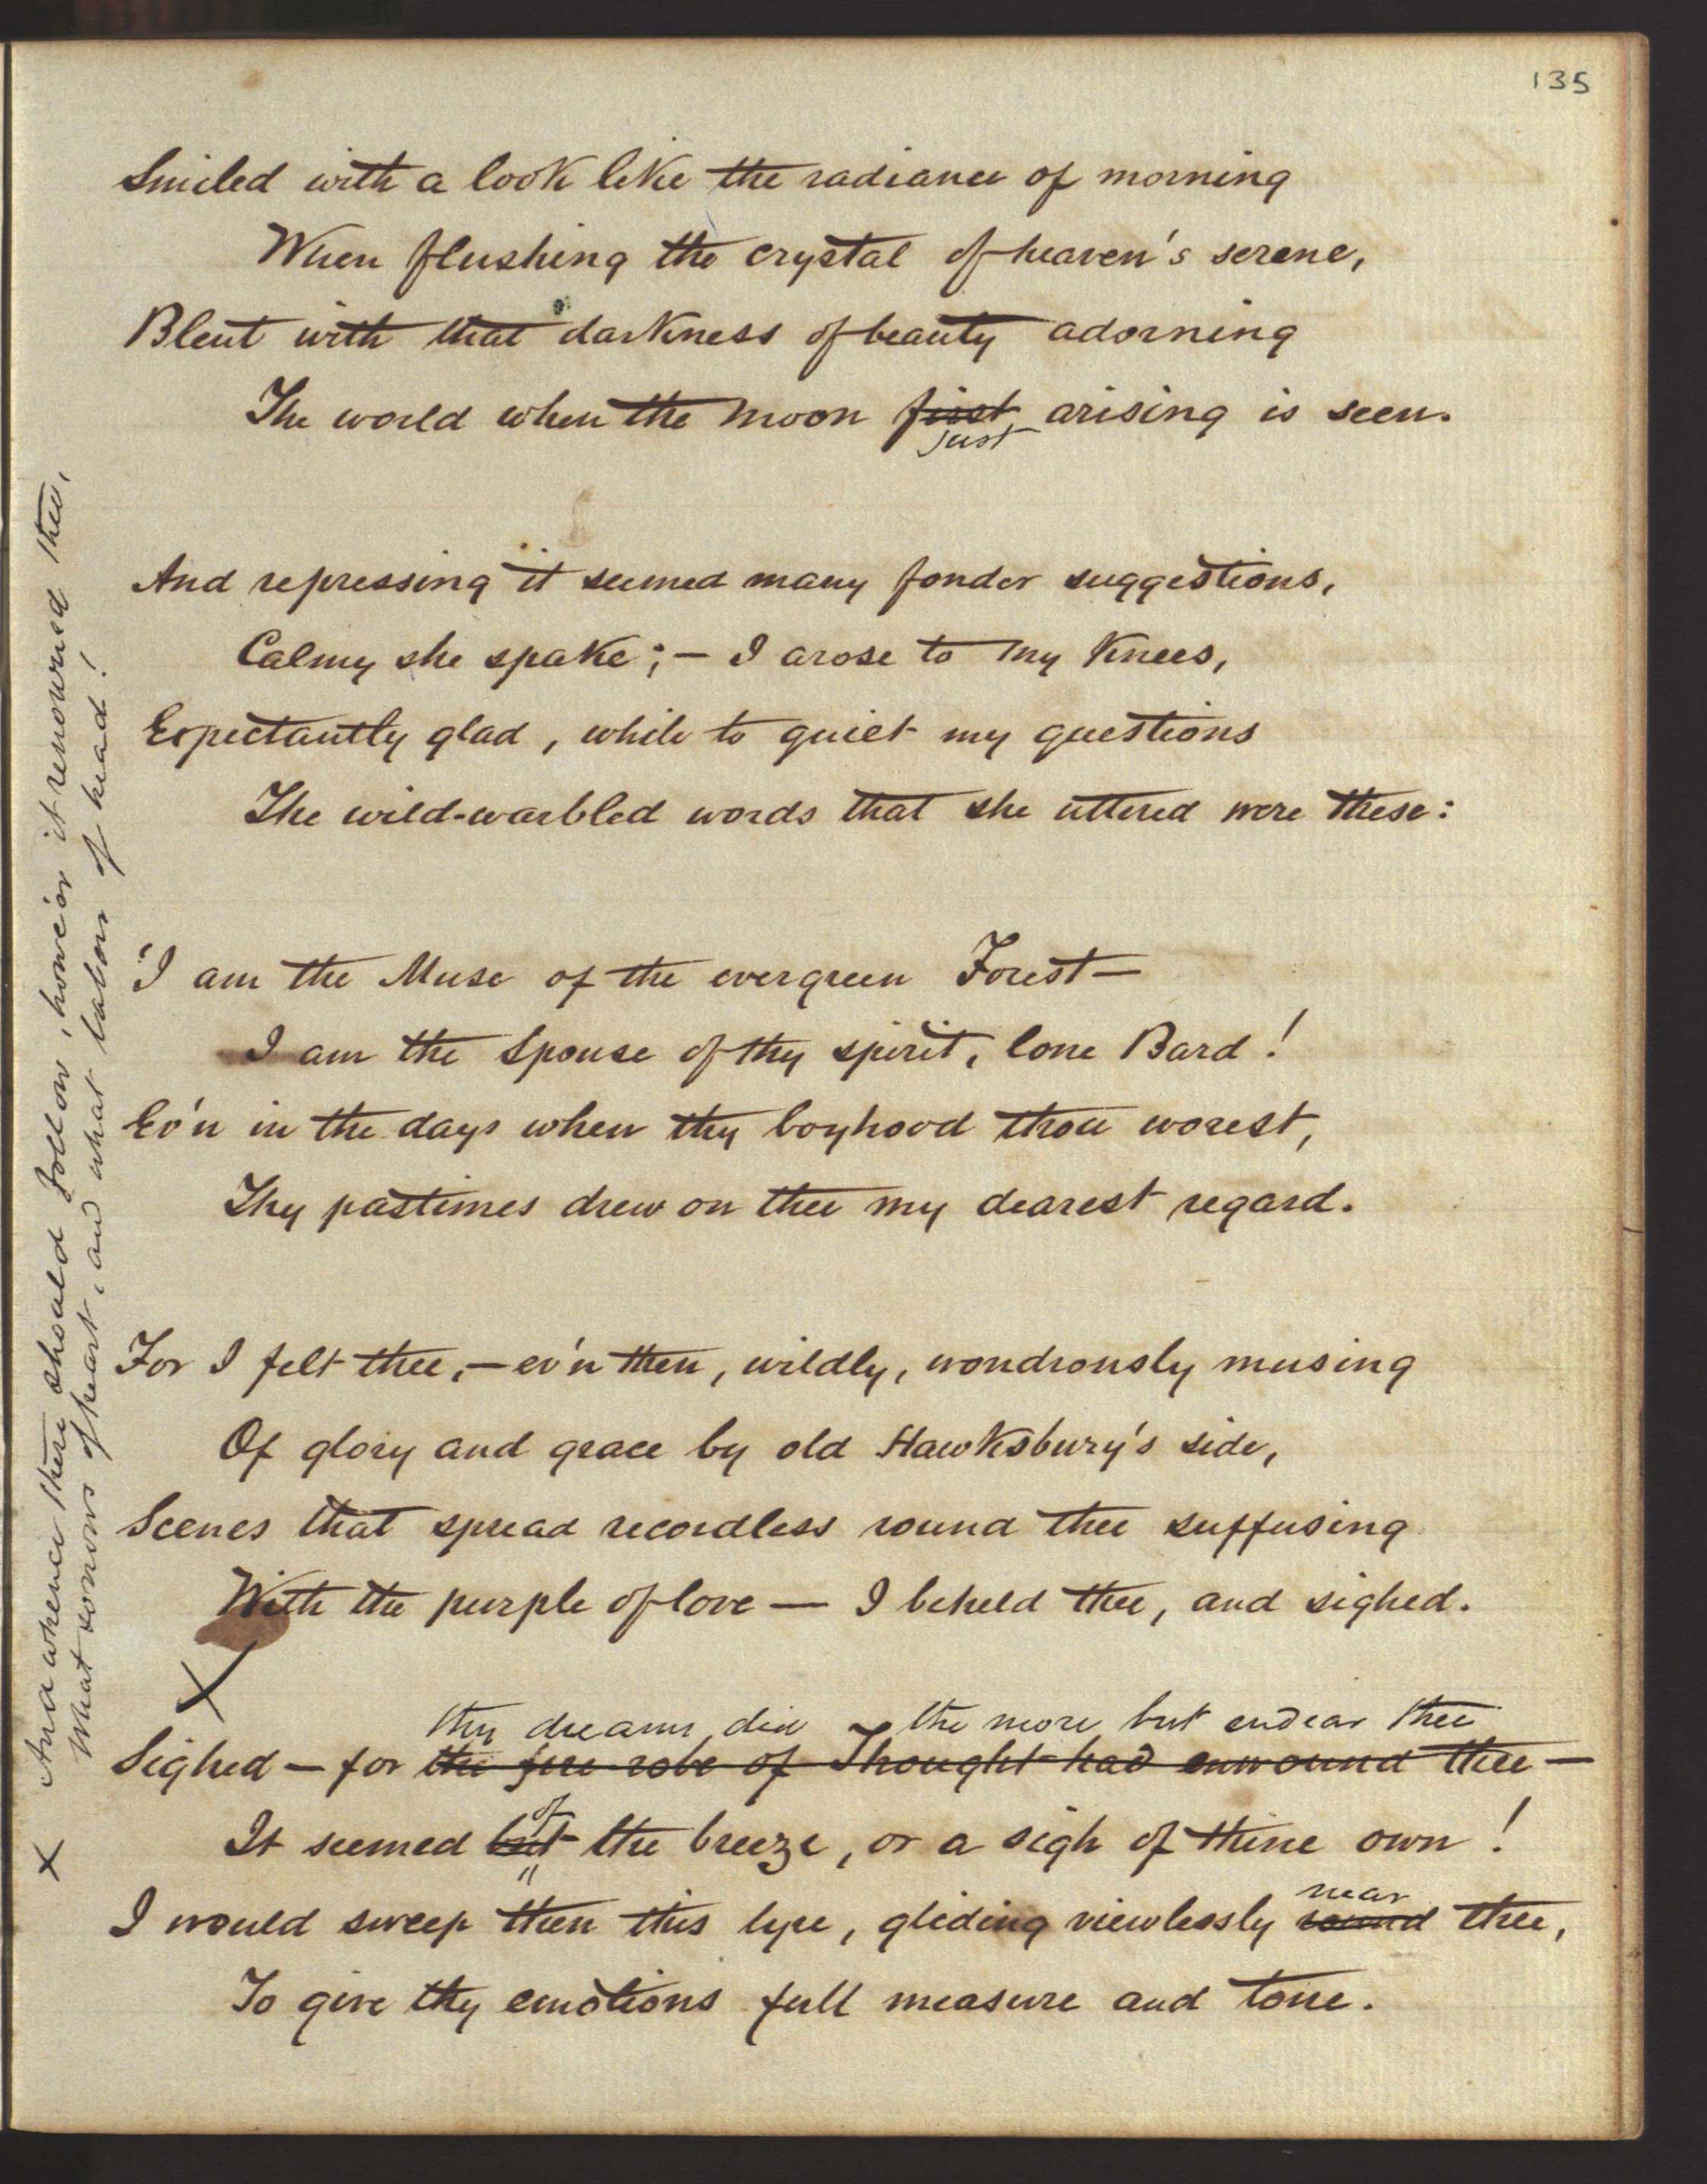 135
Smiled with a look like the radiance of morning
When flushing the crystal of heaven's serene,
Blent with that darkness of beauty adorning
The world when the moon first arising is seen.
just
And repressing it seemed many fonder suggestions,
Calmy she spake; — I arose to my Knees,
Expectantly glad, while to quiet my questions
The wild-warbled words that she uttered were these:
'I am the Muse of the evergreen Forest —
I am the Spouse of thy spirit, lone Bard!
Ev'n in the days when thy boyhood thou worest,
Thy pastimes drew on thee my dearest regard.
For I felt thee, — ev'n then, wildly, wondrously musing
Of glory and grace by old Hawksbury's side,
Scenes that spread recordless round thee suffusing
With the purple of love — I beheld thee, and sighed.
X
thy dreams did the more but endear thee
Sighed — for the fire-robe of Thought had enwound thee —
of
It seemed but the breeze, or a sigh of thine own!
"
near
I would sweep then this lyre, gliding viewlessly round thee,
To give thy emotions full measure and tone.
X And whence there should follow, howe'er it renowned thee,
What sorrows of heart, and what labors of head!